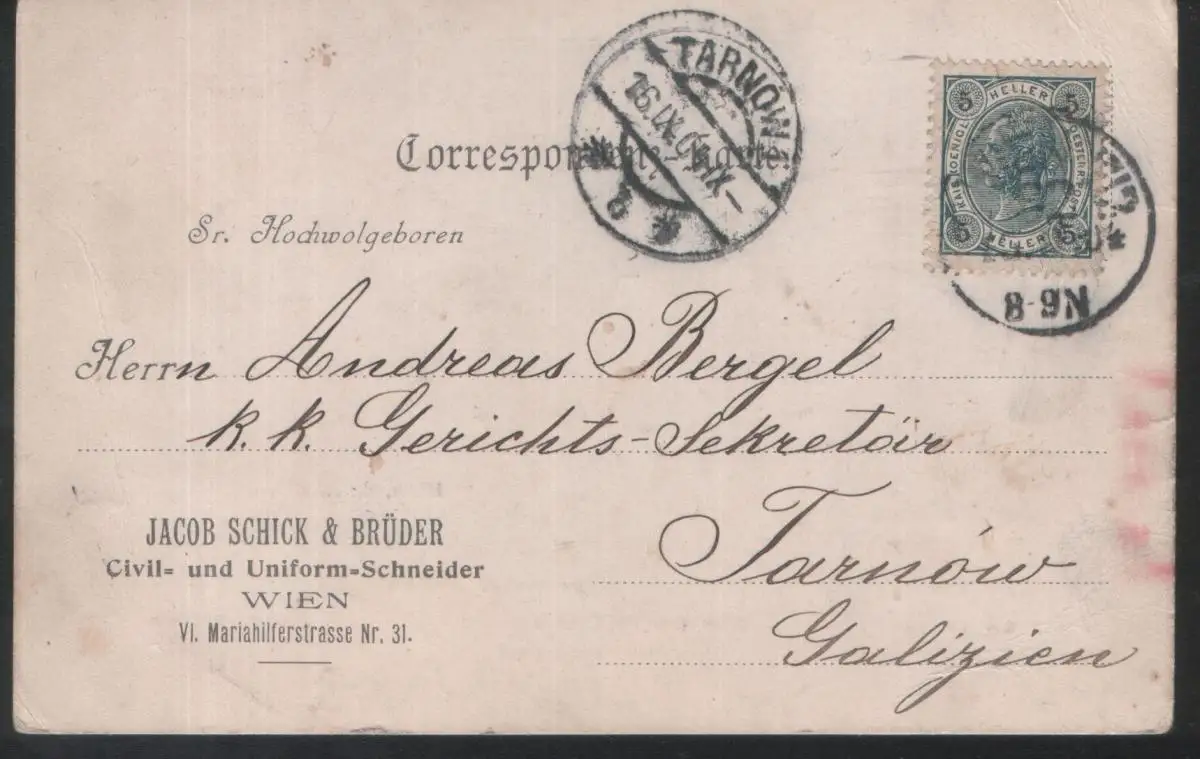 TARNÓW
16.IX.
IX-
8
Correspondenz-Karte
5 HELLER 5
KAIS. KOENIGL. OESTERR. POST
5 HELLER 5
8-9N
Sr. Hochwolgeboren
Herrn Andreas Bergel
k. k. Gerichts-Sekretär
Tarnów
Galizien
JACOB SCHICK & BRÜDER
Civil- und Uniform-Schneider
WIEN
VI. Mariahilferstrasse Nr. 31.